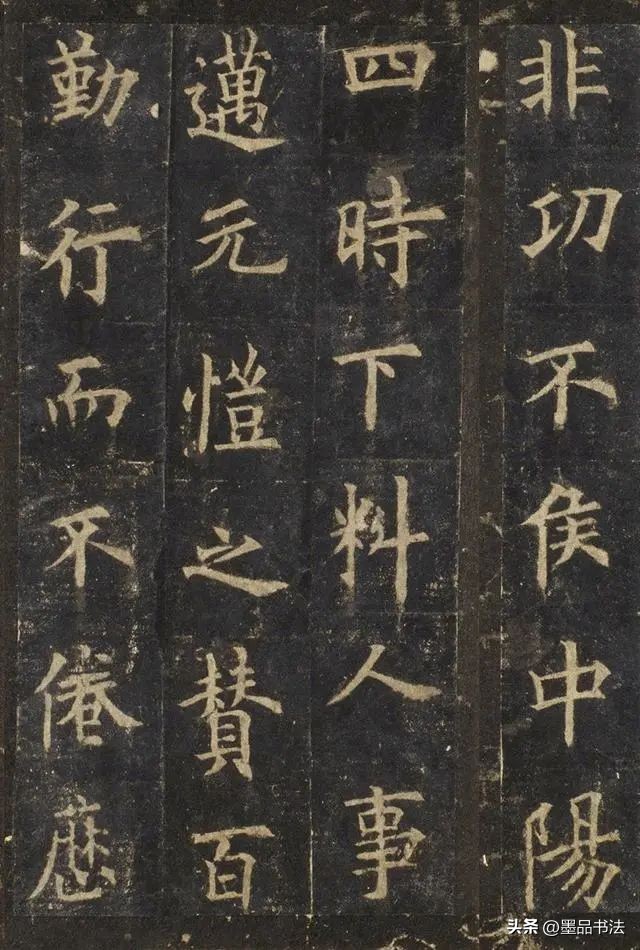 非㓛不侯中陽
四時下料人事
邁元愷之賛百
勤行而不倦
头条 @墨品书法